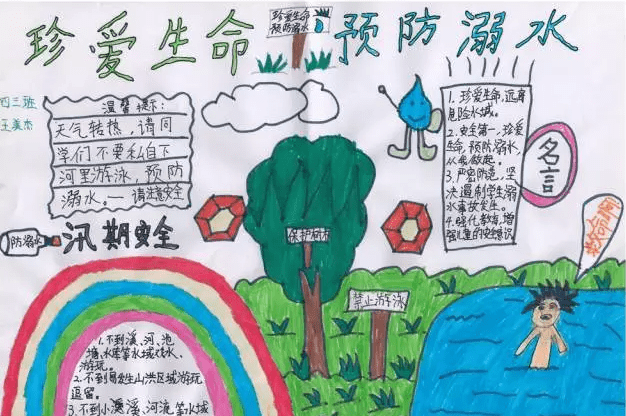 珍爱生命
珍爱生命
预防溺水
预防溺水
四三班
王美杰
温馨提示:
天气转热,请同
学们不要私自下
河里游泳,预防
溺水。— 请注意安全
1. 珍爱生命,远离
危险水域。
2. 安全第一,珍爱
生命,预防溺水,
从我做起。
3. 严密防范,坚
决遏制学生溺
水事故发生。
4. 强化教育,增
强儿童的安全意识
名言
防溺水
汛期安全
禁止游泳
1. 不到溪、河、池
塘、水库等水域戏水、
游玩。
2. 不到易发生山洪区域游玩
逗留。
3. 不到小溪、河流等水域